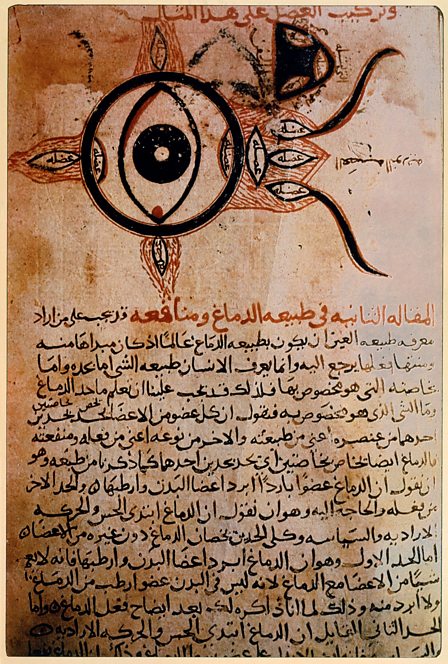 وتركيب العين على هذا المثال
عضله
عضله
عضله
عضله
عضله
عضله
المقاله الثانيه في طبيعه الدماغ ومنافعه قد يجب على من اراد
معرفه طبيعه العين ان يكون بطبيعه الدماغ عالما اذ كان مبداها منه
ومنتهى فعلها يرجع اليه وانما يعرف الانسان طبيعه الشي اما بحده واما
بخاصته التي هو مخصوص بها فلذلك قد يجب علينا ان نعلم ما حد الدماغ
وما الشي الذي هو مخصوص به فنقول ان كل عضو من الاعضا يحد بحدين
احدهما من عنصره اعني من طبيعته والاخر من نوعه اعني من فعله ومنفعته
فالدماغ ايضا احدهما كما ذكرنا من طبيعه وهو
ان نقول ان الدماغ عضوا بارد ابرد اعضا البدن وارطبها والحد الاخر
من فعله والحاجه اليه وهو ان نقول ان الدماغ ابتدى الحس والحركه
الاراديه والسياسه وكلي الحدين يخصان الدماغ دون غيره من الاعضا
اما الحد الاول وهو ان الدماغ ابرد اعضا البدن وارطبها فانه لا يعم
شيا من الاعضا مع الدماغ لانه ليس في البدن عضو ارطب من الدماغ
ولا ابرد منه وذلك لما انا ذاكره لك بعد ايضاح فعل الدماغ واما
الحد الثاني القايل ان الدماغ ابتدى الحس والحركه الاراديه